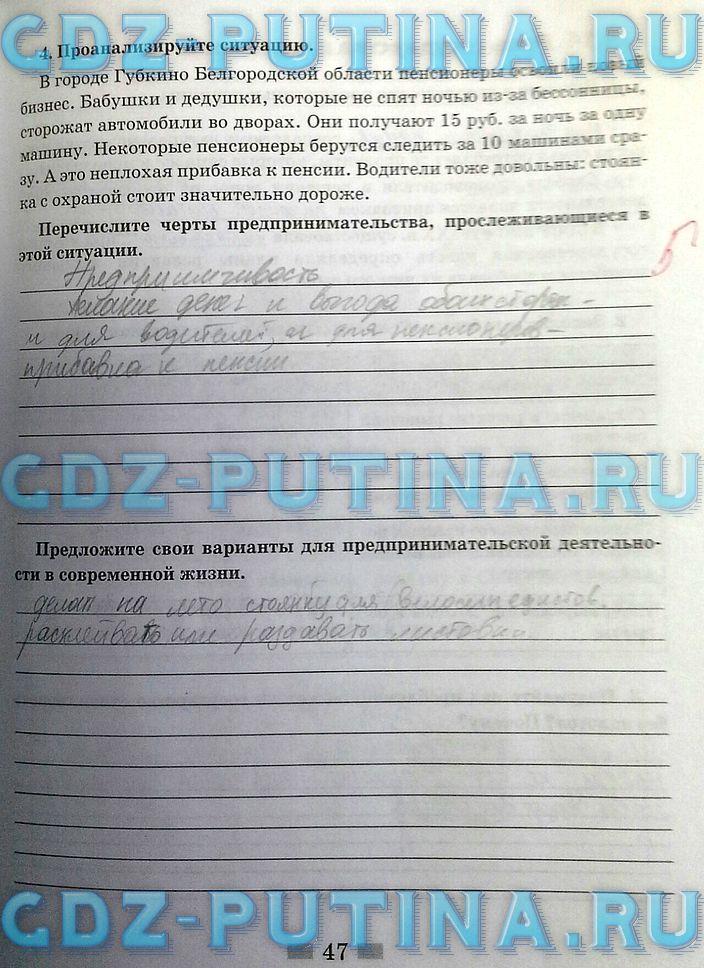 GDZ-PUTINA.RU
4. Проанализируйте ситуацию.
В городе Губкино Белгородской области пенсионеры освоили новый
бизнес. Бабушки и дедушки, которые не спят ночью из-за бессонницы,
сторожат автомобили во дворах. Они получают 15 руб. за ночь за одну
машину. Некоторые пенсионеры берутся следить за 10 машинами сра-
зу. А это неплохая прибавка к пенсии. Водители тоже довольны: стоян-
ка с охраной стоит значительно дороже.
Перечислите черты предпринимательства, прослеживающиеся в
этой ситуации.
Предприимчивость
желание денег и выгода обоих сторон -
и для водителей, и для пенсионеров -
прибавка к пенсии
GDZ-PUTINA.RU
Предложите свои варианты для предпринимательской деятельно-
сти в современной жизни.
делать на лето стоянку для велосипедистов,
расклейвать или раздавать листовки.
GDZ-PUTINA.RU
47